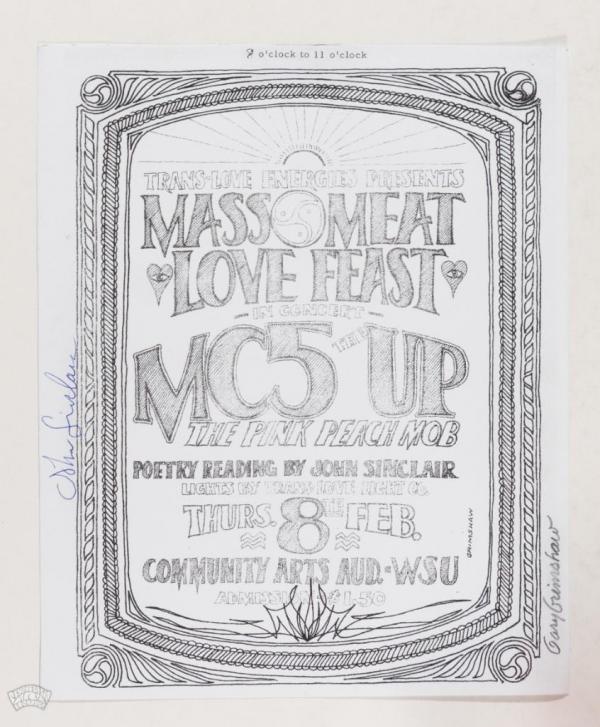 7 o'clock to 11 o'clock
TRANS-LOVE ENERGIES PRESENTS
MASS MEAT
LOVE FEAST
IN CONCERT
MC5 THE UP
THE PINK PEACH MOB
POETRY READING BY JOHN SINCLAIR
LIGHTS BY TRANS-LOVE LIGHT CO.
THURS. 8TH FEB.
COMMUNITY ARTS AUD.-WSU
ADMISSION $1.50
GRIMSHAW
John Sinclair
Gary Grimshaw